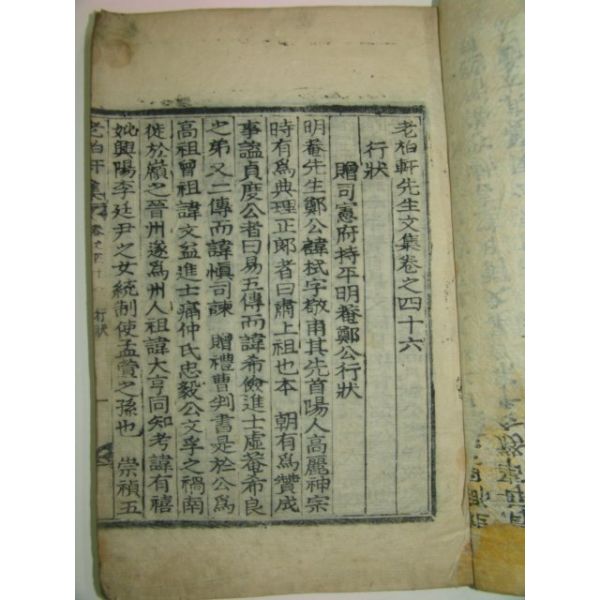 老柏軒先生文集卷之四十六
行狀
贈司憲府持平明菴鄭公行狀
明菴先生鄭公諱栻字敬甫其先首陽人高麗神宗
時有爲典理正郎者曰肅上祖也本 朝有爲贊成
事謚貞度公者曰易五傳而諱希儉進士虛菴希良
之弟又二傳而諱愼司諫 贈禮曹判書是於公爲
高祖曾祖諱文益進士痛仲氏忠毅公文孚之禍南
徙於嶺之晉州遂爲州人祖諱大亨同知考諱有禧
妣興陽李廷尹之女統制使孟 之孫也 崇禎五
老柏軒集 卷之四十六 行狀